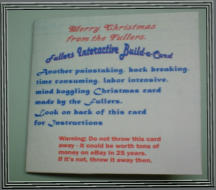 Merry Christmas
from the Fullers.
Fullers Interactive Build-a-Card
Another painstaking, back breaking,
time consuming, labor intensive,
mind boggling Christmas card
made by the Fullers.
Look on back of this card
for Instructions
Warning: Do not throw this card
away - it could be worth tons of
money on eBay in 25 years.
If it's not, throw it away then.